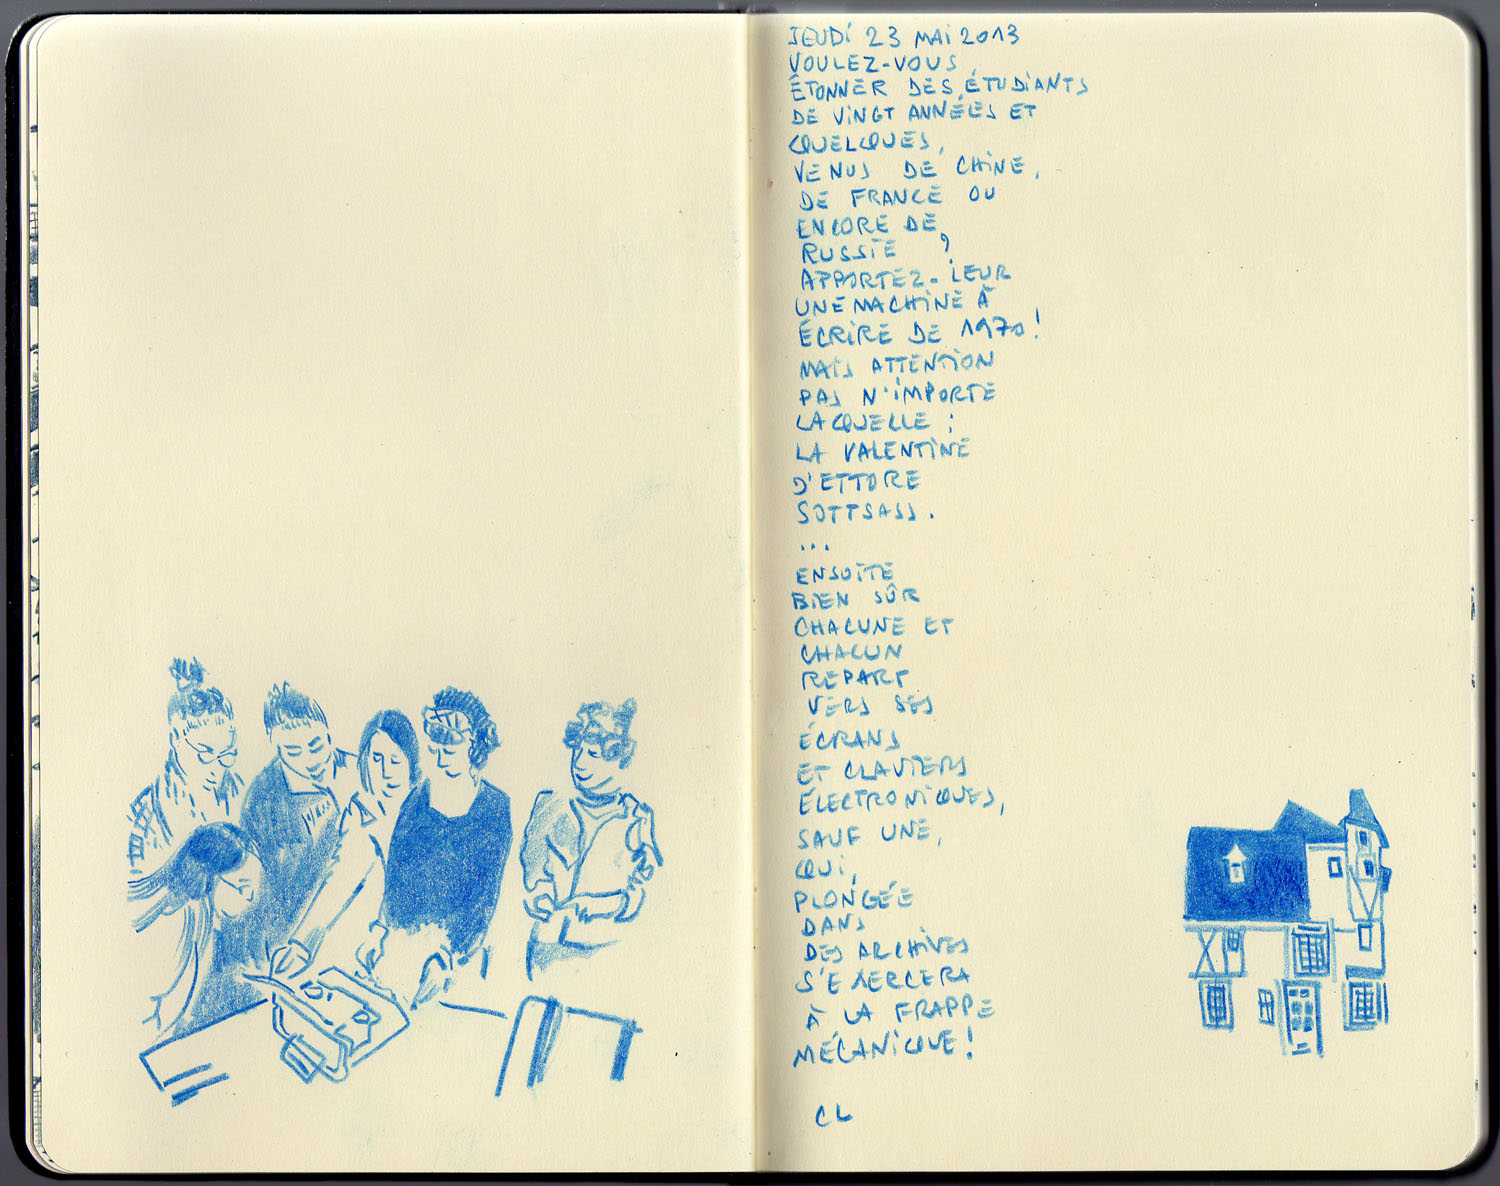 JEUDI 23 MAI 2013
VOULEZ-VOUS
ÉTONNER DES ÉTUDIANTS
DE VINGT ANNÉES ET
QUELQUES,
VENUS DE CHINE,
DE FRANCE OU
ENCORE DE
RUSSIE ?
APPORTEZ-LEUR
UNE MACHINE À
ÉCRIRE DE 1970!
MAIS ATTENTION
PAS N'IMPORTE
LAQUELLE :
LA VALENTINE
D'ETTORE
SOTTSASS.
...
ENSUITE
BIEN SÛR
CHACUNE ET
CHACUN
REPART
VERS SES
ÉCRANS
ET CLAVIERS
ÉLECTRONIQUES,
SAUF UNE,
QUI,
PLONGÉE
DANS
DES ARCHIVES
S'EXERCERA
À LA FRAPPE
MÉCANIQUE!
CL